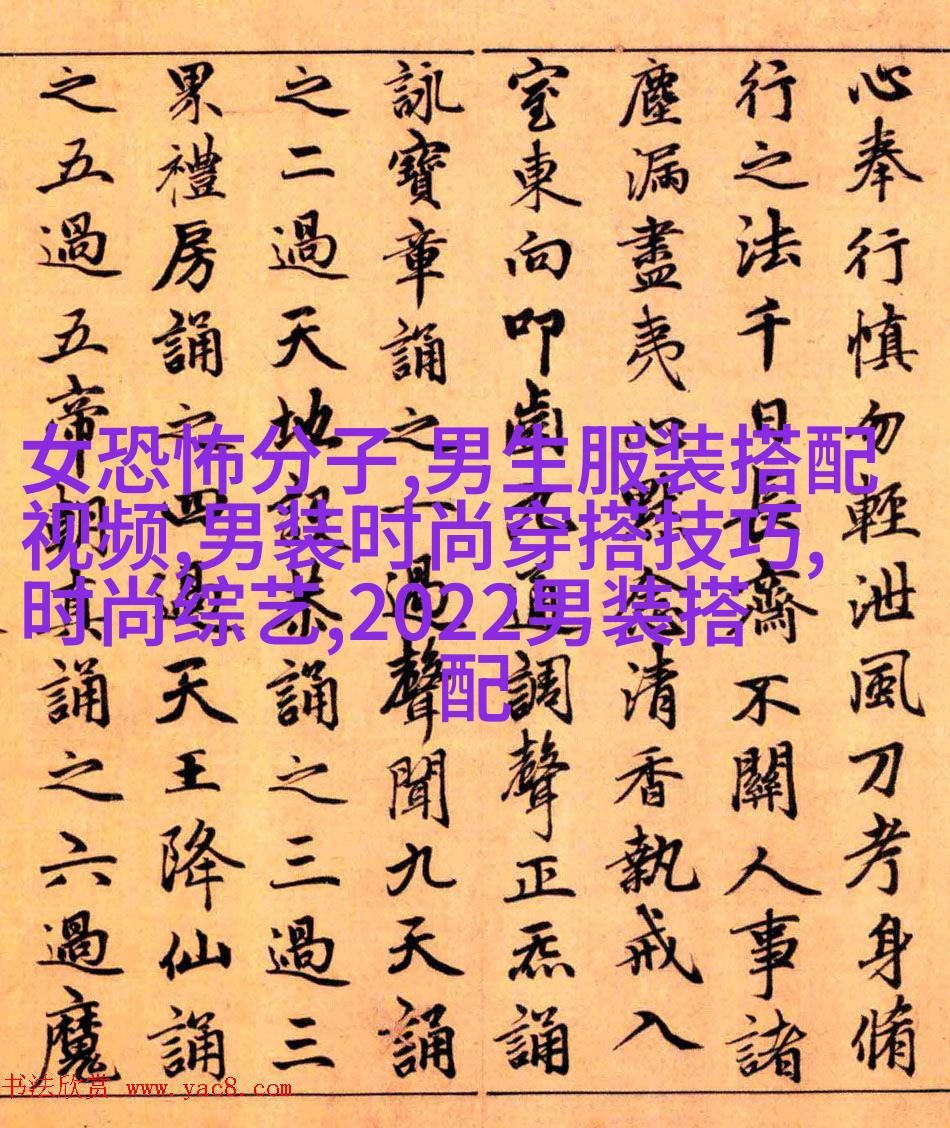 心奉行慎勿輕泄風刀考身脩
行之法千日長齋不關人事諸
塵漏盡夷心默念清香執戒入
室東向叩齒九通調聲正炁誦
詠寶章誦之一過聲聞九天誦
之二過天地設恭誦之三過三
累禮房誦之四過天王降仙誦
之五過五帝朝真誦之六過魔
女恐怖分子,男生服装搭配
视频,男装时尚穿搭技巧,
时尚综艺,2022男装搭
配
书法欣赏 www.yac8.com